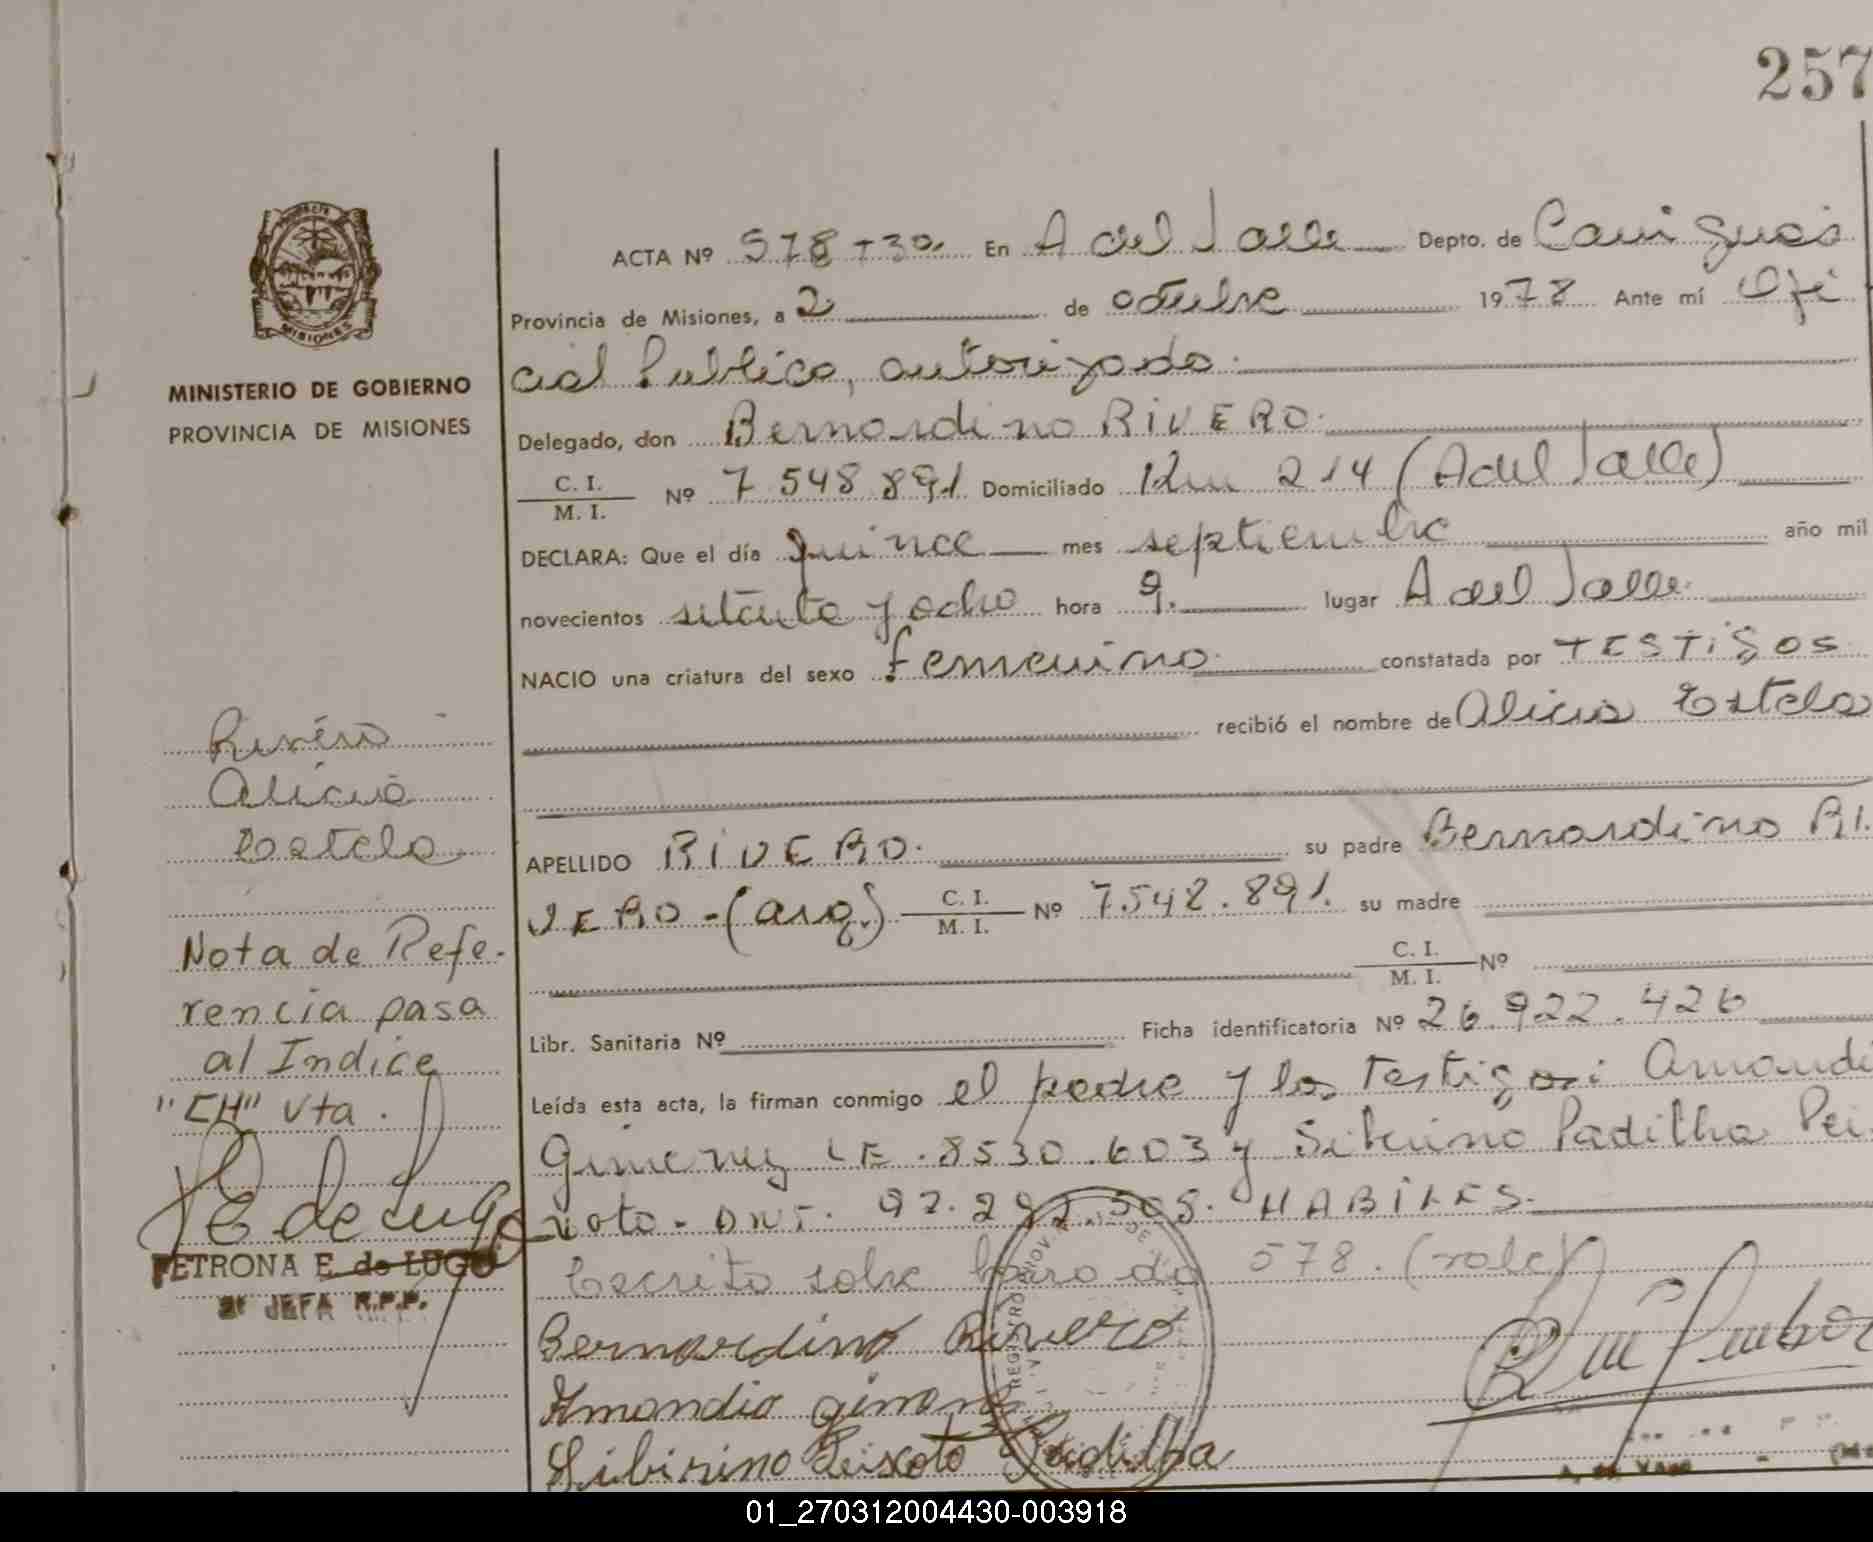 257
ACTA Nº 578 T 3º. En A del Valle Depto. de Cainguas
Provincia de Misiones, a 2 de octubre 1978 Ante mí Ofi
cial Publico, autorizado.
MINISTERIO DE GOBIERNO
PROVINCIA DE MISIONES
Delegado, don Bernardino RIVERO.
C. I.
M. I. Nº 7 548 891 Domiciliado Km 214 (A del Valle)
DECLARA: Que el día quince mes septiembre año mil
novecientos setenta y ocho hora 9. lugar A del Valle.
NACIO una criatura del sexo femenino. constatada por TESTIGOS
recibió el nombre de Alicia Estela
Rivero
Alicia
Estela
APELLIDO RIVERO. su padre Bernardino RI.
VERO-(arg.) C. I.
M. I. Nº 7.548.891. su madre
C. I.
M. I. Nº
Libr. Sanitaria Nº Ficha identificatoria Nº 26.922.426
Leída esta acta, la firman conmigo el padre y los Testigos: Amandi
Gimenez LE. 8530.603 y Padilha Pei.
xoto. DNI. HABILES.
Escrito sobre 578. (vale)
Nota de Refe-
rencia pasa
al Indice
"CH" Vta.
P E de Lugo
PETRONA E. de LUGO
2ª JEFA R.P.P.
Bernardino Rivero
Amandio
Sibirino Peixoto Padilha
REGISTRO
01_270312004430-003918